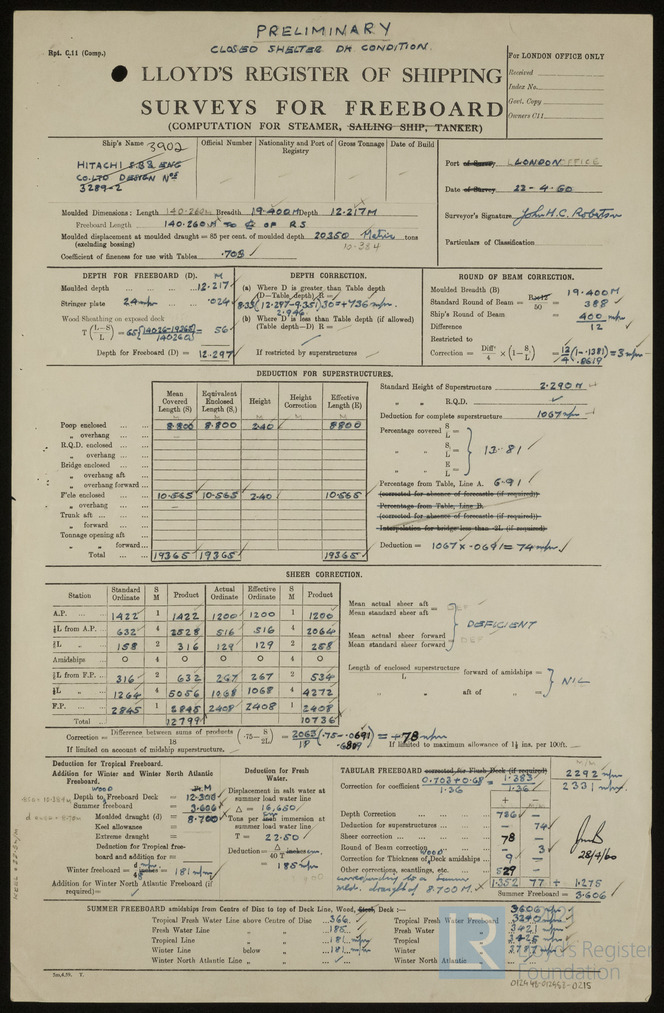 PRELIMINARY
CLOSED SHELTER DK CONDITION.
Rpt. C.11 (Comp.)
For LONDON OFFICE ONLY
Received
Index No.
Govt. Copy
Owners C11
LLOYD'S REGISTER OF SHIPPING
SURVEYS FOR FREEBOARD
(COMPUTATION FOR STEAMER, SAILING SHIP, TANKER)
Ship's Name 3902
Official Number
Nationality and Port of Registry
Gross Tonnage
Date of Build
HITACHI S.B & ENG
CO.LTD DESIGN Nos
3289-2
Port of Survey LONDON OFFICE
Date of Survey 22-4-60
Surveyor's Signature John H.C. Robertson
Particulars of Classification
Moulded Dimensions: Length 140.260m Breadth 19.400M Depth 12.217M
Freeboard Length 140.260M TO ℄ OF R S
Moulded displacement at moulded draught = 85 per cent. of moulded depth 20350 Metric tons
(excluding bossing) 10.384
Coefficient of fineness for use with Tables .703
DEPTH FOR FREEBOARD (D). M
Moulded depth 12.217
Stringer plate 24mm .024
Wood Sheathing on exposed deck
T(L-S/L) = 65(14026-19365/140260) = 56
Depth for Freeboard (D) = 12.297
DEPTH CORRECTION.
(a) Where D is greater than Table depth
(D—Table depth) R =
8.33(12.297-9.351)30 = +736mm.
2.946
(b) Where D is less than Table depth (if allowed)
(Table depth—D) R =
If restricted by superstructures
ROUND OF BEAM CORRECTION.
Moulded Breadth (B) 19.400M
Standard Round of Beam = Bx12/50 = 388
Ship's Round of Beam = 400 mm
Difference 12
Restricted to
Correction = Diff/4 × (1-S/L) = 12/4(1-.1381) = 3mm
.8619
DEDUCTION FOR SUPERSTRUCTURES.
Mean Covered Length (S)
Equivalent Enclosed Length (S₁)
Height
Height Correction
Effective Length (E)
Poop enclosed 8.800 8.800 2.40 8.800
„ overhang
R.Q.D. enclosed
„ overhang
Bridge enclosed
„ overhang aft
„ overhang forward
F'cle enclosed 10.565 10.565 2.40 10.565
„ overhang
Trunk aft
„ forward
Tonnage opening aft
„ „ forward
Total 19365 19365 19365
Standard Height of Superstructure 2.290M
„ „ R.Q.D.
Deduction for complete superstructure 1067mm
Percentage covered S/L =
„ „ S₁/L = 13.81
„ „ E/L =
Percentage from Table, Line A. 6.91
(corrected for absence of forecastle (if required))
Percentage from Table, Line B.
(corrected for absence of forecastle (if required))
Interpolation for bridge less than .2L (if required)
Deduction = 1067 x .0691 = 74mm
SHEER CORRECTION.
Station
Standard Ordinate
S M
Product
Actual Ordinate
Effective Ordinate
S M
Product
A.P. 1422 1 1422 1200 1200 1 1200
⅙L from A.P. 632 4 2528 516 516 4 2064
⅓L „ 158 2 316 129 129 2 258
Amidships 0 4 0 0 0 4 0
⅓L from F.P. 316 2 632 267 267 2 534
⅙L „ 1264 4 5056 1068 1068 4 4272
F.P. 2845 1 2845 2408 2408 1 2408
Total 12799 10736
Mean actual sheer aft =
Mean standard sheer aft
DEFICIENT
Mean actual sheer forward =
Mean standard sheer forward
Length of enclosed superstructure forward of amidships =
L
„ „ aft of „ =
NIL
Correction = Difference between sums of products/18 (.75 - S/2L) = 2063/18 (.75-.0691) = +78mm
.6809
If limited on account of midship superstructure.
If limited to maximum allowance of 1½ ins. per 100ft.
Deduction for Tropical Freeboard.
Addition for Winter and Winter North Atlantic Freeboard.
WOOD
M
Depth to Freeboard Deck = 12.306
Summer freeboard = 3.606
Moulded draught (d) = 8.700
Keel allowance =
Extreme draught =
Deduction for Tropical freeboard and addition for =
Winter freeboard = = 181mm
Addition for Winter North Atlantic Freeboard (if required) =
Deduction for Fresh Water.
Displacement in salt water at summer load water line
Δ = 16,650
Tons per cm immersion at summer load water line
T = 22.50
Deduction = Δ/40 T
= 185mm
TABULAR FREEBOARD corrected for Flush Deck (if required) 2292mm
Correction for coefficient 0.703 + 0.68/1.36 = 1.383/1.36 2331mm.
+ —
Depth Correction 736
Deduction for superstructures — 74
Sheer correction 78
Round of Beam correction — 3
Correction for Thickness of Deck amidships WOOD 9
Other corrections, scantlings, etc. 529
corresponding to a summer
mld. draught of 8.700 M.
1.352 77 + 1.275
Summer Freeboard = 3.606
28/4/60
SUMMER FREEBOARD amidships from Centre of Disc to top of Deck Line, Wood, Steel, Deck :— 3606mm
Tropical Fresh Water Line above Centre of Disc 366
Fresh Water Line „ „ 185
Tropical Line „ „ 181mm
Winter Line below „ 181mm
Winter North Atlantic Line „ „
Tropical Fresh Water Freeboard 3240mm
Fresh Water „ 3421mm
Tropical „ 3425mm
Winter „ 3787mm
Winter North Atlantic „
5m,4,59. T.
LR
Lloyd's Register
Foundation
012448-012453-0215